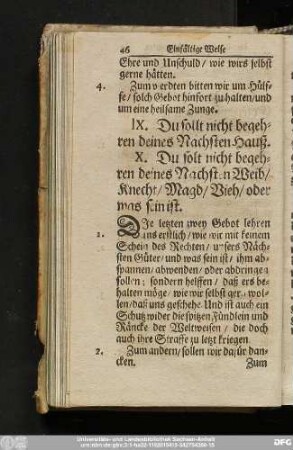 46 Einfältige Weise
Ehre und Unschuld / wie wirs selbst
gerne hätten.
4. Zum vierdten bitten wir um Hülf-
fe / solch Gebot hinfort zu halten / und
um eine heilsame Zunge.
IX. Du sollt nicht begeh-
ren deines Nachsten Hauß.
X. Du solt nicht begeh-
ren deines Nachsten Weib /
Knecht / Magd / Vieh / oder
was sein ist.
DJe letzten zwey Gebot lehren
1. uns erstlich / wie wir mit keinem
Schein des Rechten / unsers Näch-
sten Güter / und was sein ist / ihm ab-
spannen / abwenden / oder abdringen
sollen; sondern helffen / daß ers be-
halten möge / wie wir selbst gern wol-
len / daß uns geschehe. Und ist auch ein
Schutz wider die spitzen Fündlein und
Räncke der Weltweisen / die doch
auch ihre Straffe zu letzt kriegen.
2. Zum andern / sollen wir dafür dan-
cken. Zum
Universitäts- und Landesbibliothek Sachsen-Anhalt
DFG